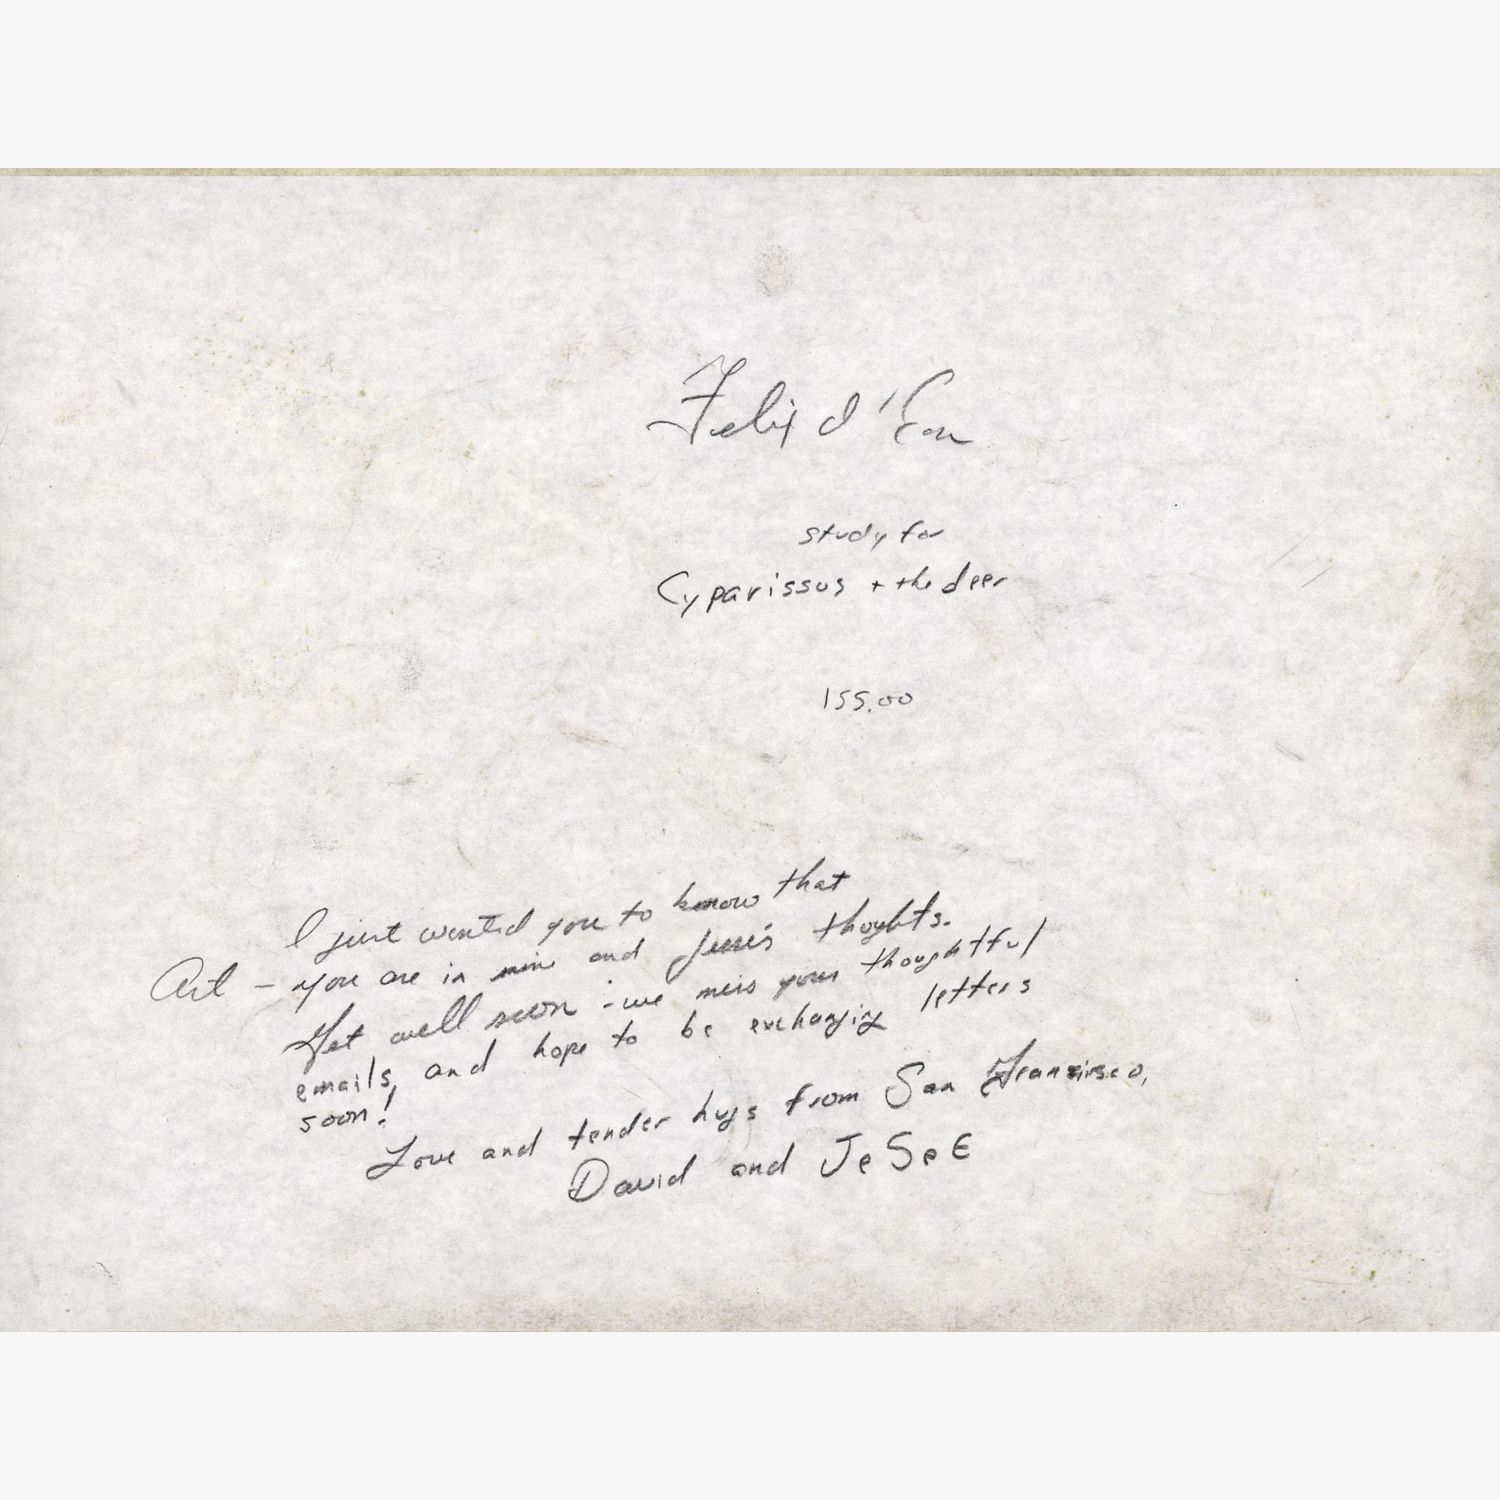 Felix d'Eon
study for
Cyparissus + the deer
155.00
I just wanted you to know that
Art - you are in mine and Jesse's thoughts.
Get well soon - we miss your thoughtful
emails, and hope to be exchangig letters
soon!
Love and tender hugs from San Fransisco,
David and JeSeE